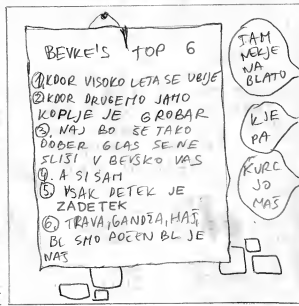 BEVKE'S TOP 6
① KDOR VISOKO LETA SE UBIJE
② KDOR DRUGEMO JAMO
KOPLJE JE GROBAR
③, NAJ BO ŠE TAKO
DOBER GLAS SE NE
SLIŠI V BEVSKO VAS
④. A SI SAM
⑤. VSAK DETEK JE
ZADETEK
⑥, TRAVA, GANDŽA, HAŠ
BL SMO POČEN BL JE
NAŠ
TAM
NEKJE
NA
BLATU
KJE
PA
KURC
JO
MAŠ